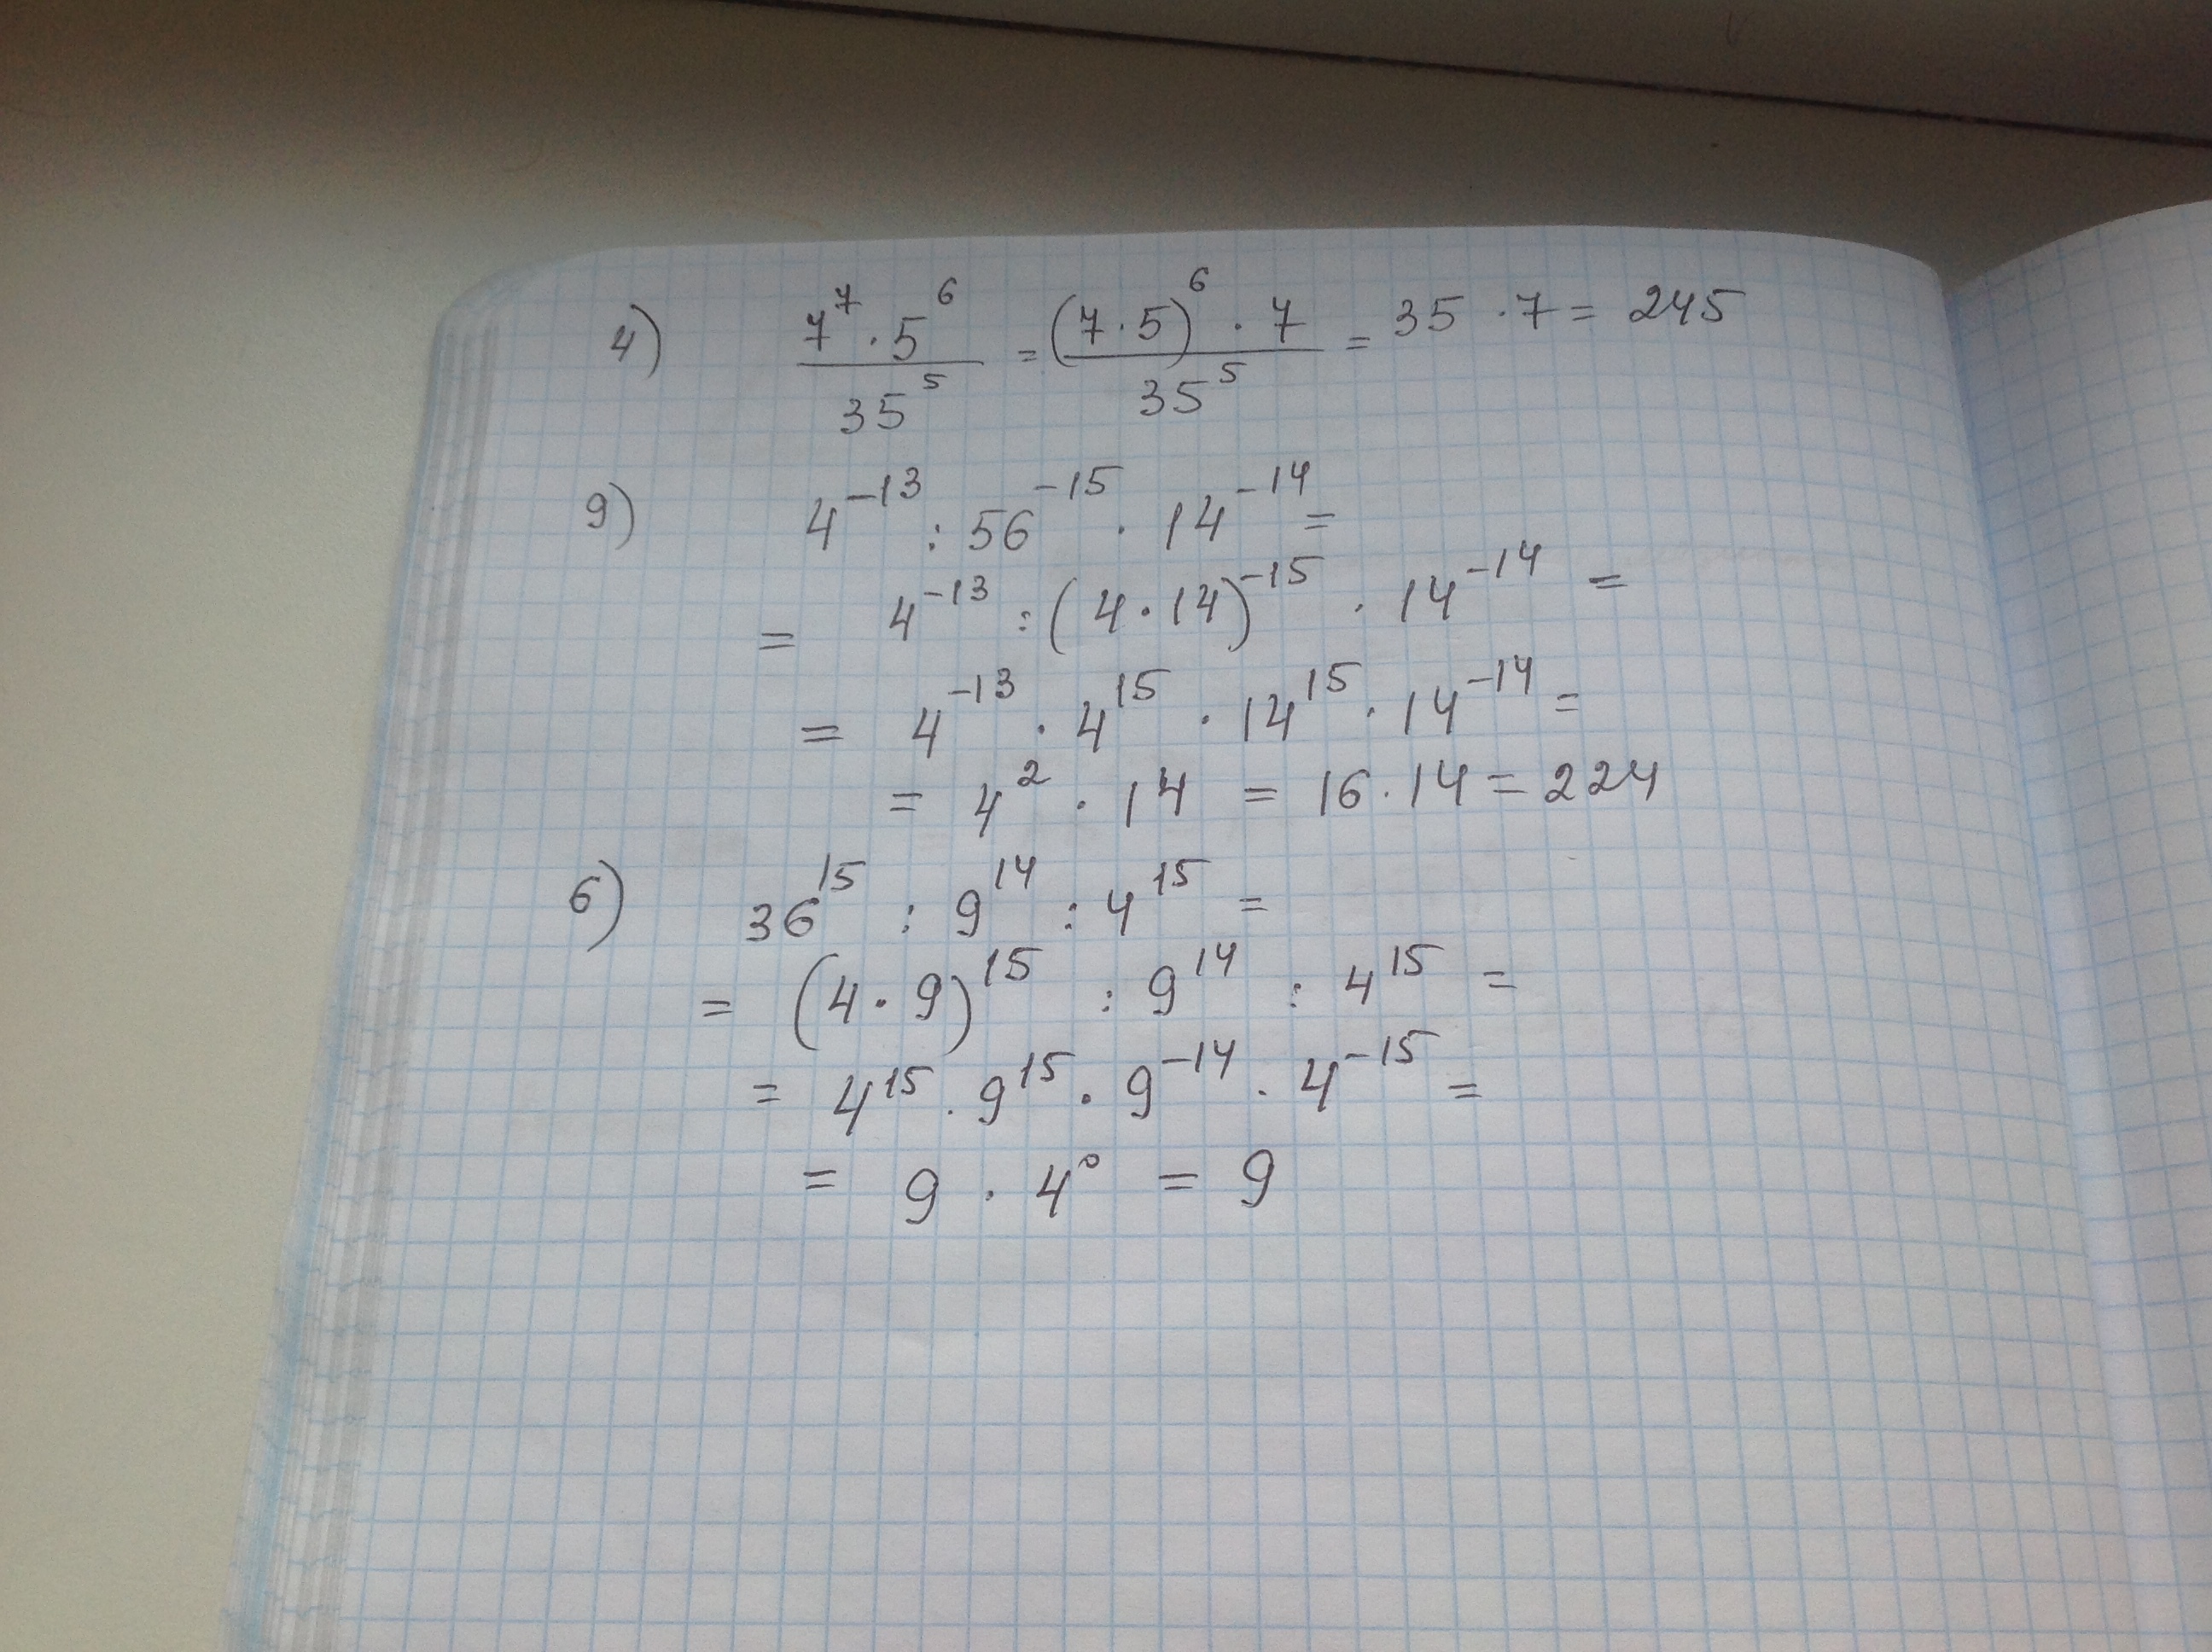 4) 7⁷ · 5⁶ / 35⁵ = (7 · 5)⁶ · 7 / 35⁵ = 35 · 7 = 245
9) 4⁻¹³ : 56⁻¹⁵ · 14⁻¹⁴ =
= 4⁻¹³ : (4 · 14)⁻¹⁵ · 14⁻¹⁴ =
= 4⁻¹³ · 4¹⁵ · 14¹⁵ · 14⁻¹⁴ =
= 4² · 14 = 16 · 14 = 224
6) 36¹⁵ : 9¹⁴ : 4¹⁵ =
= (4 · 9)¹⁵ : 9¹⁴ : 4¹⁵ =
= 4¹⁵ · 9¹⁵ · 9⁻¹⁴ · 4⁻¹⁵ =
= 9 · 4⁰ = 9